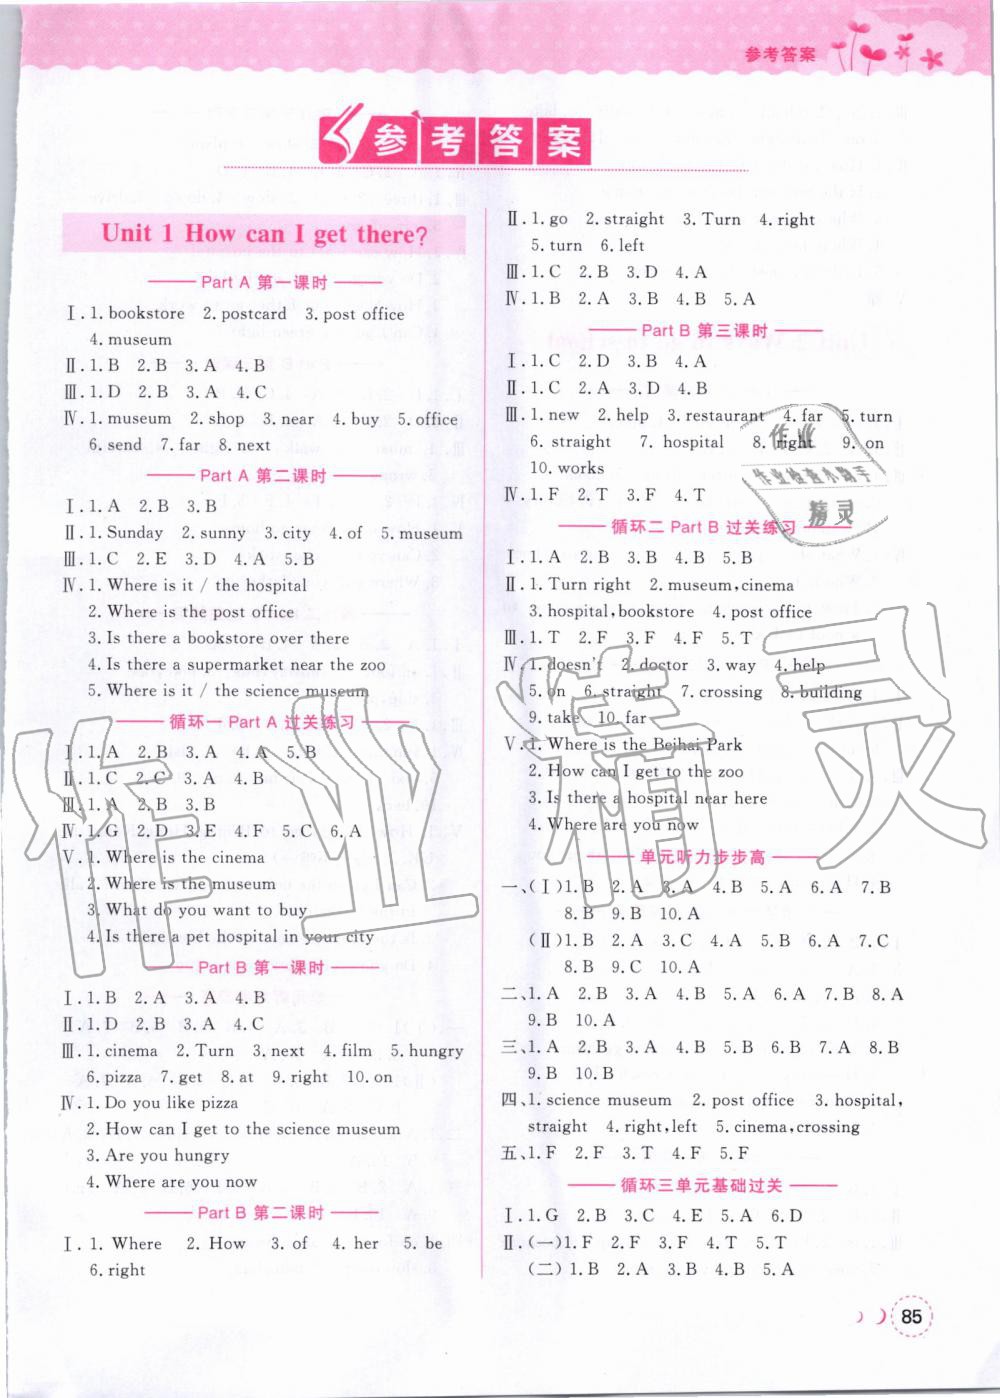 参考答案
参考答案
Unit 1 How can I get there?
Part A 第一课时
Ⅰ. 1. bookstore 2. postcard 3. post office
4. museum
Ⅱ. 1. B 2. B 3. A 4. B
Ⅲ. 1. D 2. B 3. A 4. C
Ⅳ. 1. museum 2. shop 3. near 4. buy 5. office
6. send 7. far 8. next
Part A 第二课时
Ⅰ. 1. A 2. B 3. B
Ⅱ. 1. Sunday 2. sunny 3. city 4. of 5. museum
Ⅲ. 1. C 2. E 3. D 4. A 5. B
Ⅳ. 1. Where is it / the hospital
2. Where is the post office
3. Is there a bookstore over there
4. Is there a supermarket near the zoo
5. Where is it / the science museum
循环一 Part A 过关练习
Ⅰ. 1. A 2. B 3. A 4. A 5. B
Ⅱ. 1. C 2. C 3. A 4. B
Ⅲ. 1. A 2. B 3. B
Ⅳ. 1. G 2. D 3. E 4. F 5. C 6. A
Ⅴ. 1. Where is the cinema
2. Where is the museum
3. What do you want to buy
4. Is there a pet hospital in your city
Part B 第一课时
Ⅰ. 1. B 2. A 3. A 4. B
Ⅱ. 1. D 2. B 3. A 4. C
Ⅲ. 1. cinema 2. Turn 3. next 4. film 5. hungry
6. pizza 7. get 8. at 9. right 10. on
Ⅳ. 1. Do you like pizza
2. How can I get to the science museum
3. Are you hungry
4. Where are you now
Part B 第二课时
Ⅰ. 1. Where 2. How 3. of 4. her 5. be
6. right
Ⅱ. 1. go 2. straight 3. Turn 4. right
5. turn 6. left
Ⅲ. 1. C 2. B 3. D 4. A
Ⅳ. 1. B 2. A 3. B 4. B 5. A
Part B 第三课时
Ⅰ. 1. C 2. D 3. B 4. A
Ⅱ. 1. C 2. A 3. D 4. B
Ⅲ. 1. new 2. help 3. restaurant 4. far 5. turn
6. straight 7. hospital 8. right 9. on
10. works
Ⅳ. 1. F 2. T 3. F 4. T
循环二 Part B 过关练习
Ⅰ. 1. A 2. B 3. B 4. B 5. B
Ⅱ. 1. Turn right 2. museum, cinema
3. hospital, bookstore 4. post office
Ⅲ. 1. T 2. F 3. F 4. F 5. T
Ⅳ. 1. doesn't 2. doctor 3. way 4. help
5. on 6. straight 7. crossing 8. building
9. take 10. far
Ⅴ. 1. Where is the Beihai Park
2. How can I get to the zoo
3. Is there a hospital near here
4. Where are you now
单元听力步步高
一、(Ⅰ) 1. B 2. A 3. A 4. B 5. A 6. A 7. B
8. B 9. B 10. A
(Ⅱ) 1. B 2. A 3. C 4. A 5. B 6. A 7. C
8. B 9. C 10. A
二、1. A 2. B 3. A 4. B 5. A 6. A 7. B 8. A
9. B 10. A
三、1. A 2. B 3. A 4. B 5. B 6. B 7. A 8. B
9. B 10. B
四、1. science museum 2. post office 3. hospital,
straight 4. right, left 5. cinema, crossing
五、1. F 2. F 3. T 4. F 5. F
循环三单元基础过关
Ⅰ. 1. G 2. B 3. C 4. E 5. A 6. D
Ⅱ. (一) 1. F 2. F 3. F 4. T 5. T
(二) 1. B 2. A 3. B 4. B 5. A
85
作业
作业检查小助手
精灵
作业精灵